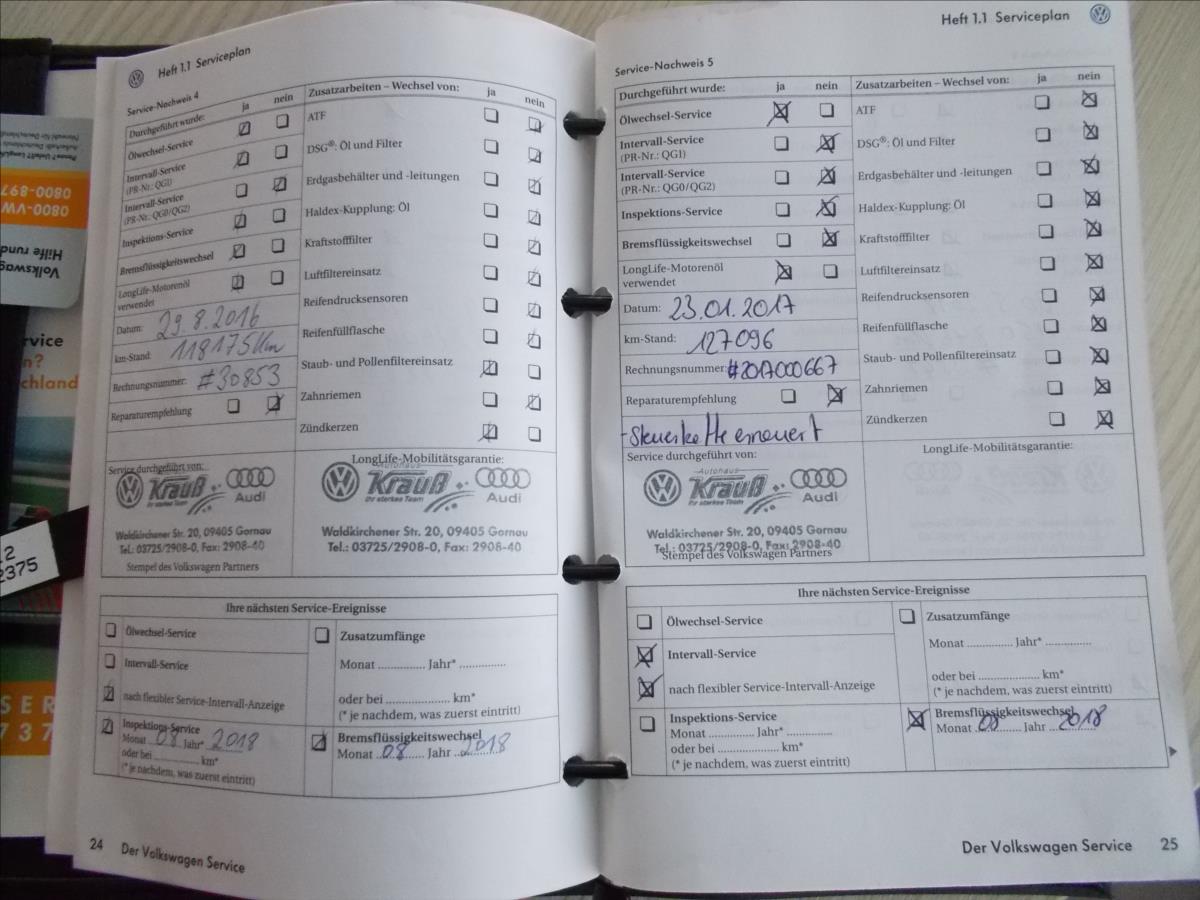 Heft 1.1 Serviceplan
Service-Nachweis 4
Durchgeführt wurde: ja nein
Ölwechsel-Service
Intervall-Service
(PR-Nr.: QG1)
Intervall-Service
(PR-Nr.: QG0/QG2)
Inspektions-Service
Bremsflüssigkeitswechsel
LongLife-Motorenöl
verwendet
Datum: 29.8.2016
km-Stand: 118175 Km
Rechnungsnummer: #30853
Reparaturempfehlung
Zusatzarbeiten – Wechsel von: ja nein
ATF
DSG®: Öl und Filter
Erdgasbehälter und -leitungen
Haldex-Kupplung: Öl
Kraftstofffilter
Luftfiltereinsatz
Reifendrucksensoren
Reifenfüllflasche
Staub- und Pollenfiltereinsatz
Zahnriemen
Zündkerzen
Service durchgeführt von:
Krauß
Ihr starkes Team
Audi
Waldkirchener Str. 20, 09405 Gornau
Tel.: 03725/2908-0, Fax: 2908-40
Stempel des Volkswagen Partners
LongLife-Mobilitätsgarantie:
Krauß
Ihr starkes Team
Audi
Waldkirchener Str. 20, 09405 Gornau
Tel.: 03725/2908-0, Fax: 2908-40
Ihre nächsten Service-Ereignisse
Ölwechsel-Service
Intervall-Service
nach flexibler Service-Intervall-Anzeige
Inspektions-Service
Monat 08 Jahr* 2018
oder bei .................. km*
(* je nachdem, was zuerst eintritt)
Zusatzumfänge
Monat .............. Jahr* ..............
oder bei .................... km*
(* je nachdem, was zuerst eintritt)
Bremsflüssigkeitswechsel
Monat 08 Jahr 2018
24 Der Volkswagen Service
Heft 1.1 Serviceplan
Service-Nachweis 5
Durchgeführt wurde: ja nein
Ölwechsel-Service
Intervall-Service
(PR-Nr.: QG1)
Intervall-Service
(PR-Nr.: QG0/QG2)
Inspektions-Service
Bremsflüssigkeitswechsel
LongLife-Motorenöl
verwendet
Datum: 23.01.2017
km-Stand: 127096
Rechnungsnummer: #20A000667
Reparaturempfehlung
- Steuerkette erneuert
Zusatzarbeiten – Wechsel von: ja nein
ATF
DSG®: Öl und Filter
Erdgasbehälter und -leitungen
Haldex-Kupplung: Öl
Kraftstofffilter
Luftfiltereinsatz
Reifendrucksensoren
Reifenfüllflasche
Staub- und Pollenfiltereinsatz
Zahnriemen
Zündkerzen
Service durchgeführt von:
Autohaus
Krauß
Ihr starkes Team
Audi
Waldkirchener Str. 20, 09405 Gornau
Tel.: 03725/2908-0, Fax: 2908-40
Stempel des Volkswagen Partners
LongLife-Mobilitätsgarantie:
Ihre nächsten Service-Ereignisse
Ölwechsel-Service
Intervall-Service
nach flexibler Service-Intervall-Anzeige
Inspektions-Service
Monat .............. Jahr* ..............
oder bei .................... km*
(* je nachdem, was zuerst eintritt)
Zusatzumfänge
Monat .............. Jahr* ..............
oder bei .................... km*
(* je nachdem, was zuerst eintritt)
Bremsflüssigkeitswechsel
Monat 08 Jahr 2018
Der Volkswagen Service 25
0800-897
0800-VW
Hilfe rund
Volkswag
rvice
n?
chland
2
2375
SER
737